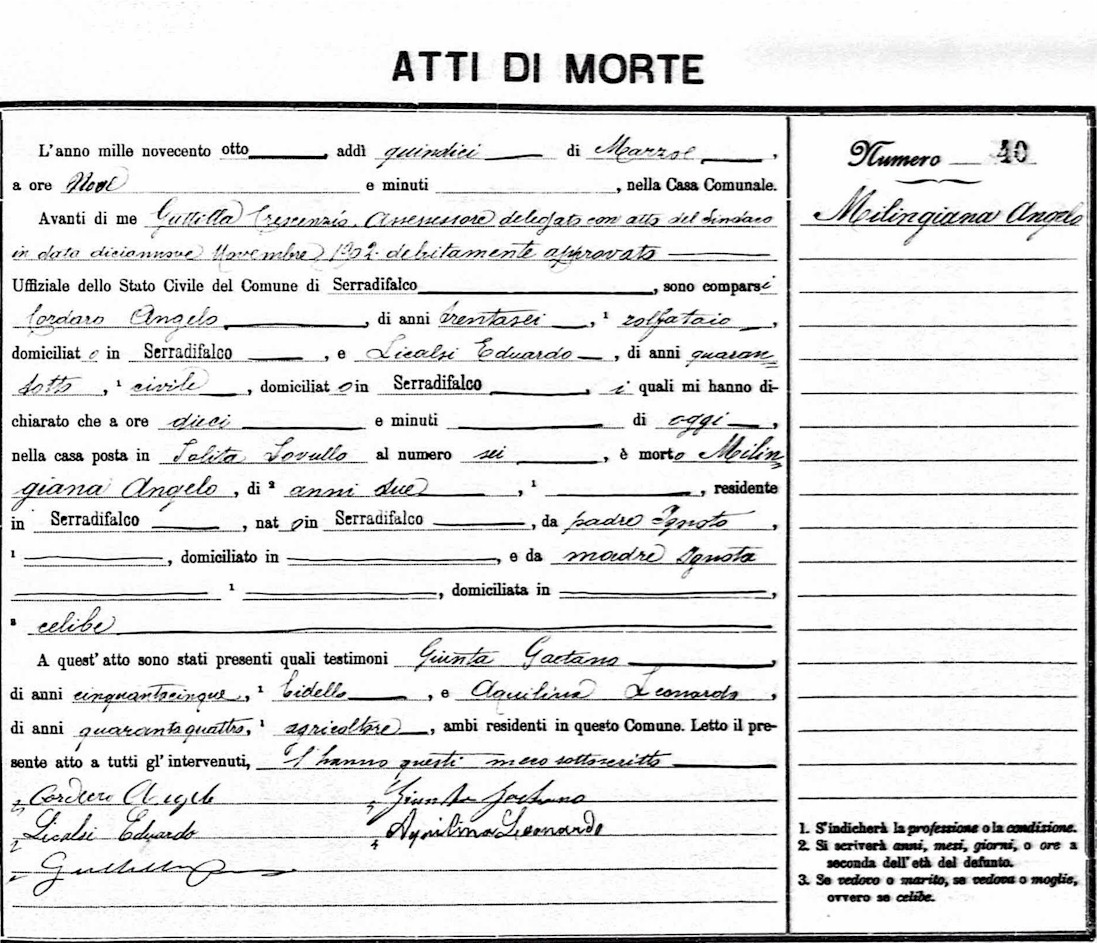 ATTI DI MORTE
L'anno mille novecento otto, addì quindici di Marzo,
a ore Nove e minuti, nella Casa Comunale.
Avanti di me Guttilla Crescenzio, Assessore delegato con atto del Sindaco
in data diciannove Novembre 1902 debitamente approvato
Uffiziale dello Stato Civile del Comune di Serradifalco, sono comparsi
Cordaro Angelo, di anni trentasei, ¹ zolfataio,
domiciliato in Serradifalco, e Licalsi Eduardo, di anni quaran=
totto, ¹ civile, domiciliato in Serradifalco, i quali mi hanno di-
chiarato che a ore dieci e minuti di oggi,
nella casa posta in Salita Lovullo al numero sei, è morto Milin=
giana Angelo, di ² anni due, ¹, residente
in Serradifalco, nato in Serradifalco, da padre Ignoto,
¹, domiciliato in, e da madre Ignota
¹, domiciliata in,
³ celibe
A quest'atto sono stati presenti quali testimoni Giunta Gaetano,
di anni cinquantacinque, ¹ bidello, e Aquilina Leonardo,
di anni quarantaquattro, ¹ agricoltore, ambi residenti in questo Comune. Letto il pre-
sente atto a tutti gl'intervenuti, l'hanno questi meco sottoscritto
Cordaro Angelo
Giunta Gaetano
Licalsi Eduardo
Aquilina Leonardo
Numero 40
Milingiana Angelo
1. S'indicherà la professione o la condizione.
2. Si scriverà anni, mesi, giorni, o ore a
seconda dell'età del defunto.
3. Se vedovo o marito, se vedova o moglie,
ovvero se celibe.